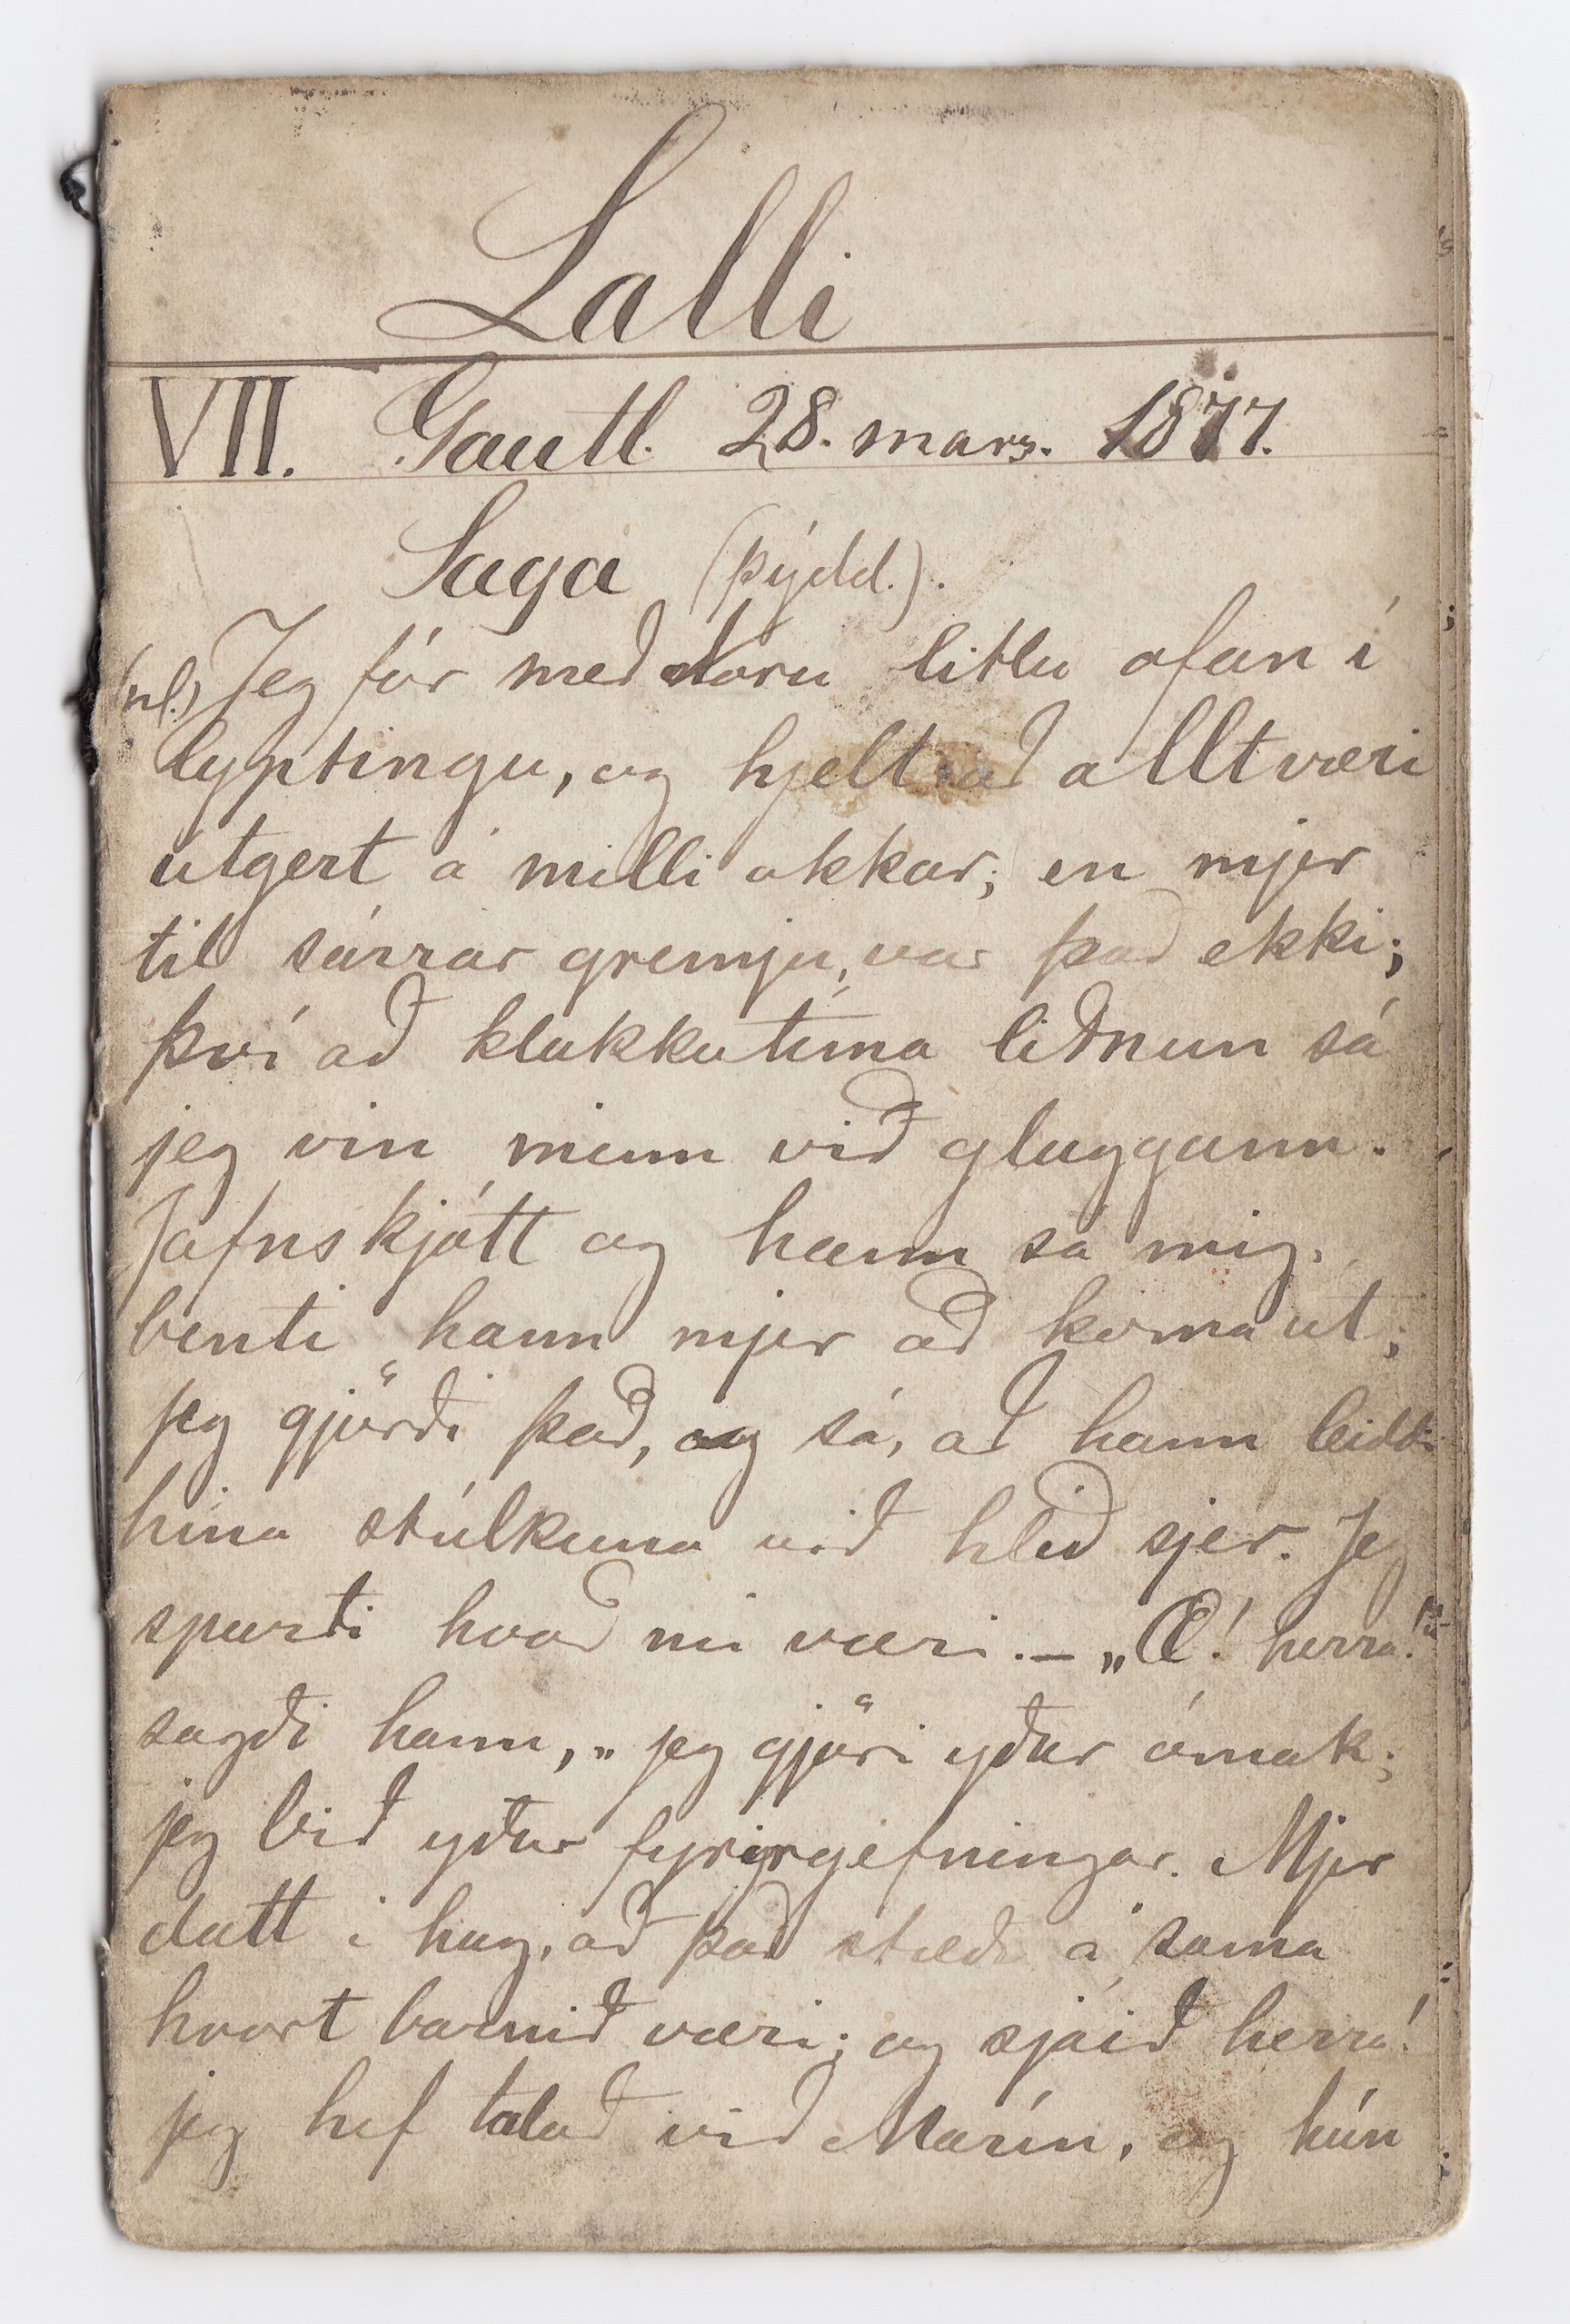 Lalli
VII. Gautl. 28. mars. 1877.
Saga (þýdd.).
(nl.) Jeg fór með Noru litlu ofan í
lyptingu, og hjelt að allt væri
útgert á milli okkar; en mjer
til sárrar gremju, var það ekki;
því að klukkutíma liðnum sá
jeg vin minn við gluggann.
Jafnskjótt og hann sá mig,
benti hann mjer að koma út;
jeg gjörði það, og sá, að hann leiddi
hina stúlkuna við hlið sjer. Jeg
spurði hvað nú væri. — „Æ! herra!“
sagði hann, „jeg gjöri yður ómak;
jeg bið yður fyrirgefningar. Mjer
datt í hug, að það stæði á sama
hvort barnið væri; og sjáið herra!
jeg hef talað við Marín, og hún